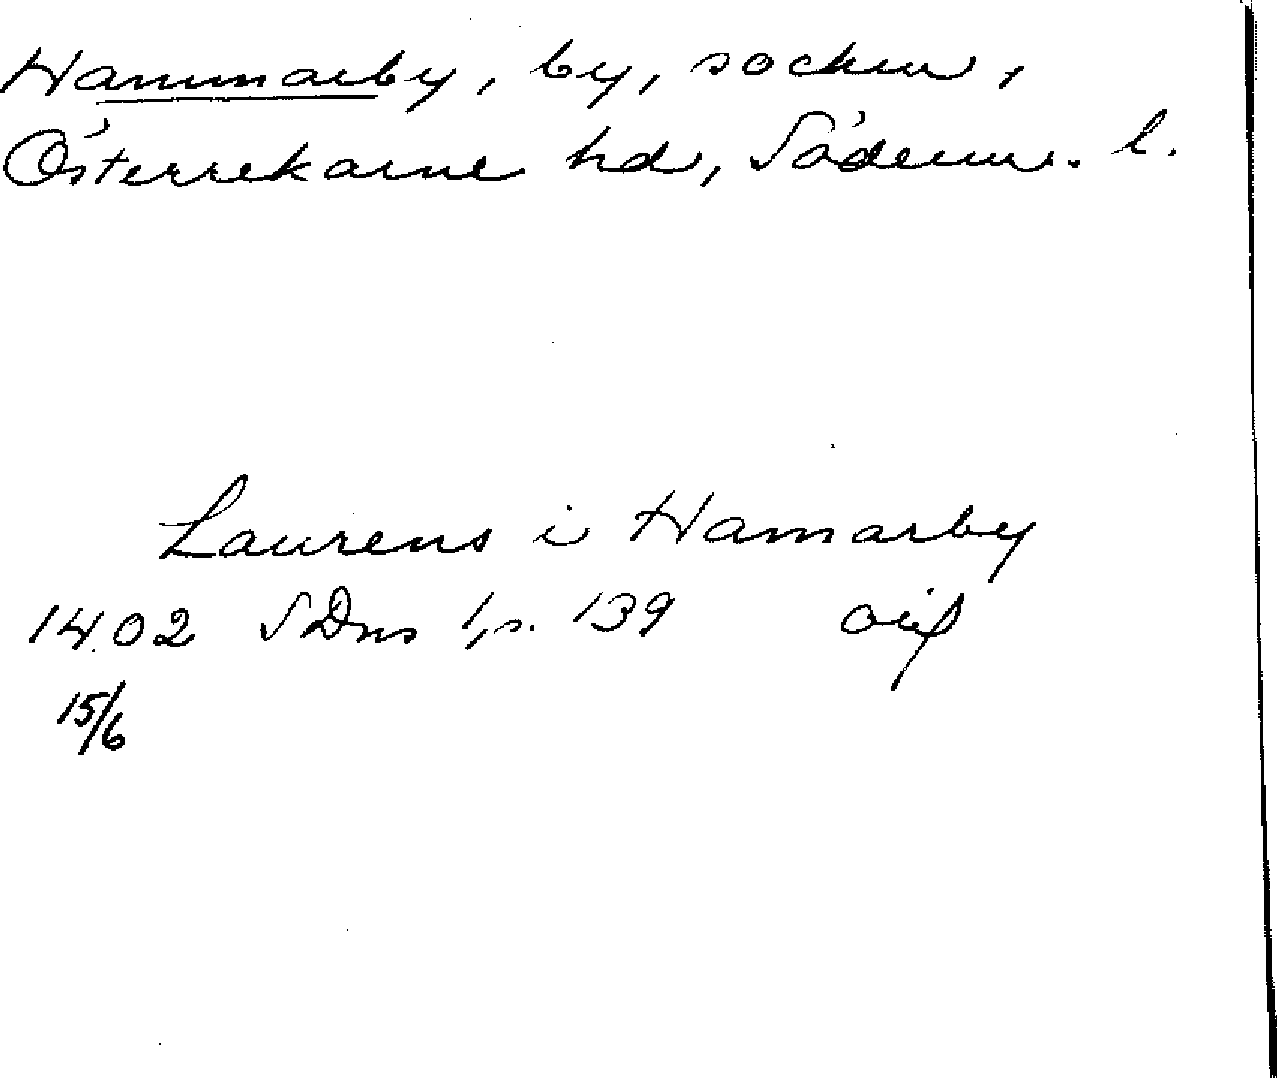 Hammarby, by, socken,
Österrekarne hd, Söderm. l.
Laurens i Hamarby
1402 SDns 1, s. 139
15/6